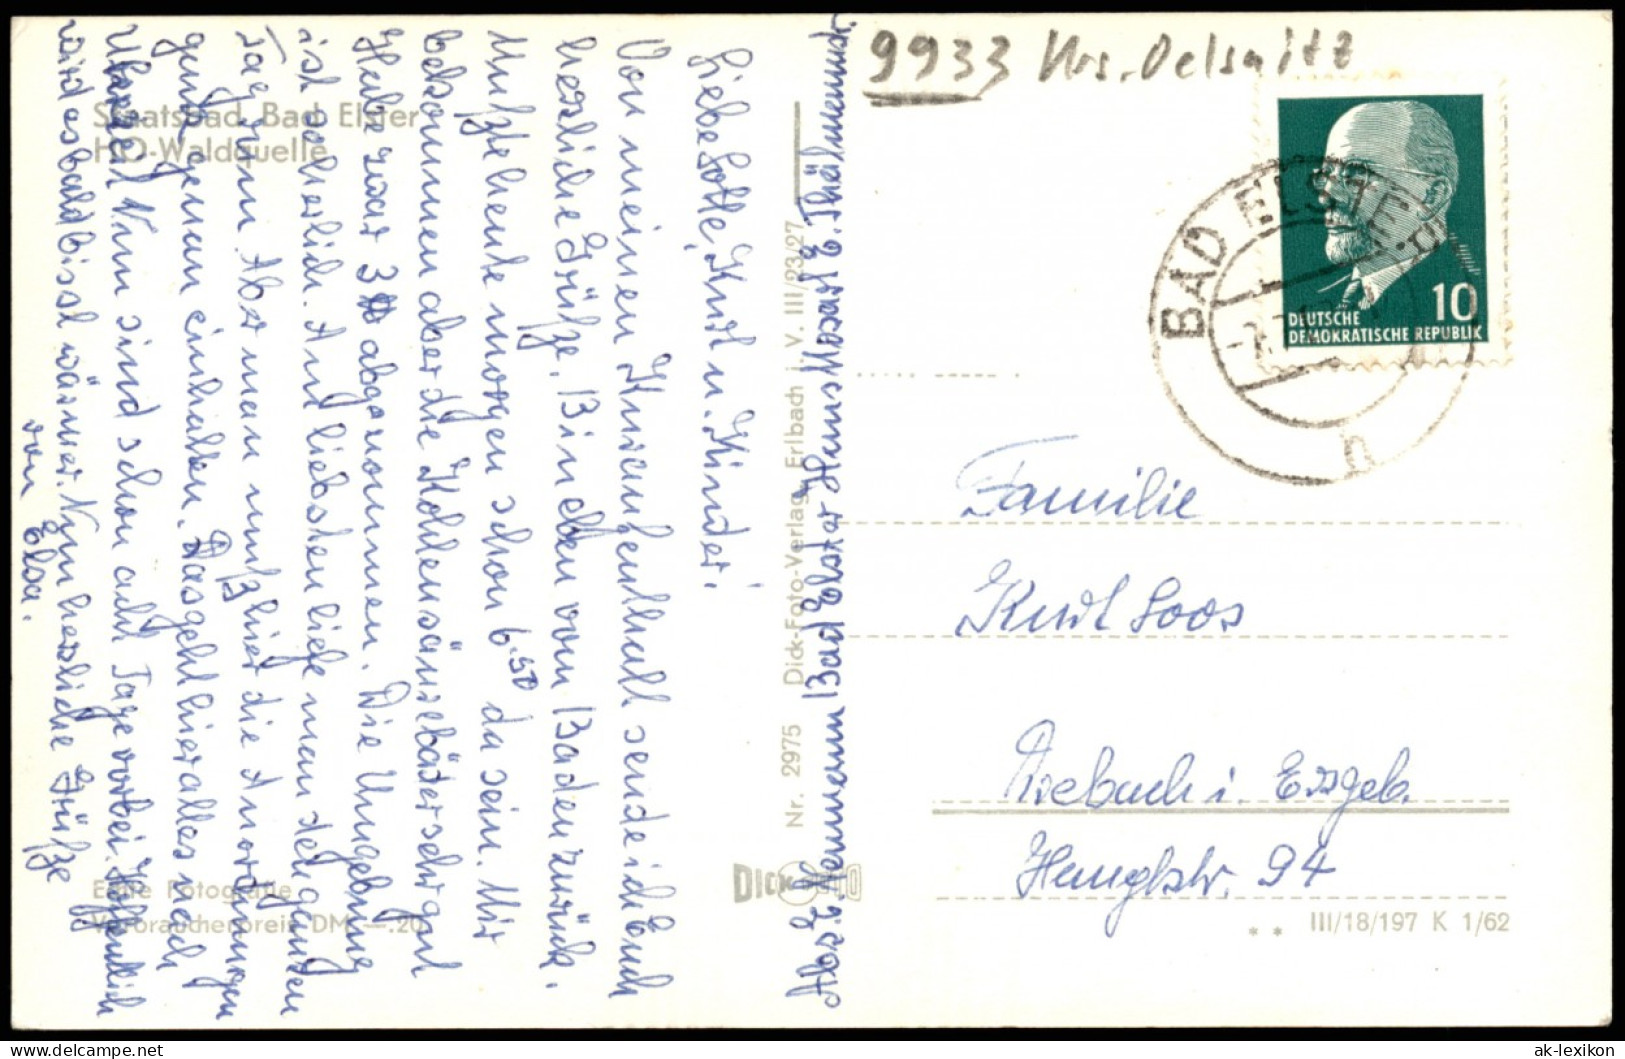 9933 Krs. Oelsnitz
Staatsbad Bad Elster
HO-Waldquelle
Echte Fotografie
Verbraucherpreis DM —.20
Liebe Lotte, Kurt u. Kinder!
Von meinen Kuraufenthalt sende ich Euch
herzliche Grüße. Bin eben vom Baden zurück.
Mußte heute morgen schon 6.50 da sein. Mir
bekommen aber die Kohlensäurebäder sehr gut
Habe zwar 3 ℔ abgenommen. Die Umgebung
ist so herrlich. Am liebsten liefe man den ganzen
Tag rum. Aber man muß hier die Anordnungen
ganz genau einhalten. Das geht hier alles nach
Uhrzeit Nun sind schon acht Tage vorbei. Hoffentlich
wird es bald bissl wärmer. Nun herzliche Grüße
von Elsa.
Nr. 2975 Dick-Foto-Verlag, Erlbach i. V. III/23/27
Abs. E. Hermann Bad Elster Haus Rosa i. E. Thälmannstr.
DICK FOTO
DEUTSCHE
DEMOKRATISCHE REPUBLIK
10
BAD ELSTER
n
Familie
Kurt Loos
Drebach i. Erzgeb.
Hauptstr. 94
** III/18/197 K 1/62
© ak-lexikon
delcampe.net